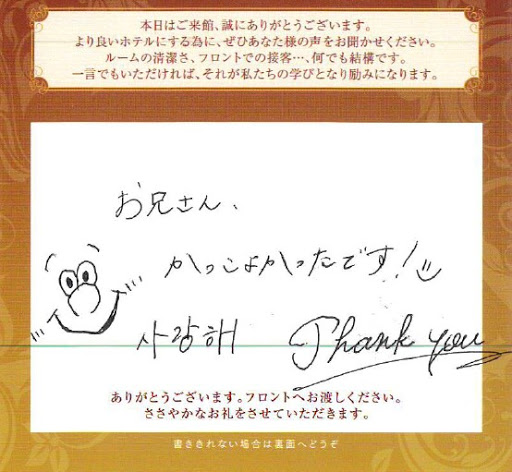 本日はご来館、誠にありがとうございます。
より良いホテルにする為に、ぜひあなた様の声をお聞かせください。
ルームの清潔さ、フロントでの接客…、何でも結構です。
一言でもいただければ、それが私たちの学びとなり励みになります。
お兄さん、
かっこよかったです!
사랑해 Thank you
ありがとうございます。フロントへお渡しください。
ささやかなお礼をさせていただきます。
書ききれない場合は裏面へどうぞ